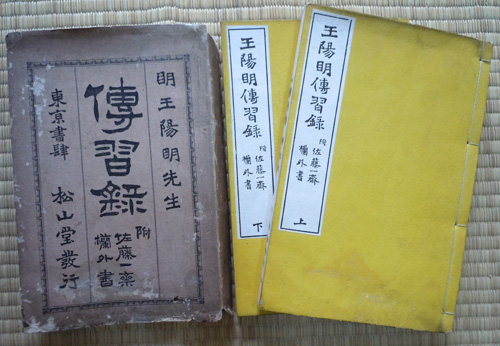 明王陽明先生
傳習録
附
佐藤一齋
欄外書
東京書肆
松山堂發行
王陽明傳習録
附
佐藤一齋
欄外書
上
王陽明傳習録
附
佐藤一齋
欄外書
下